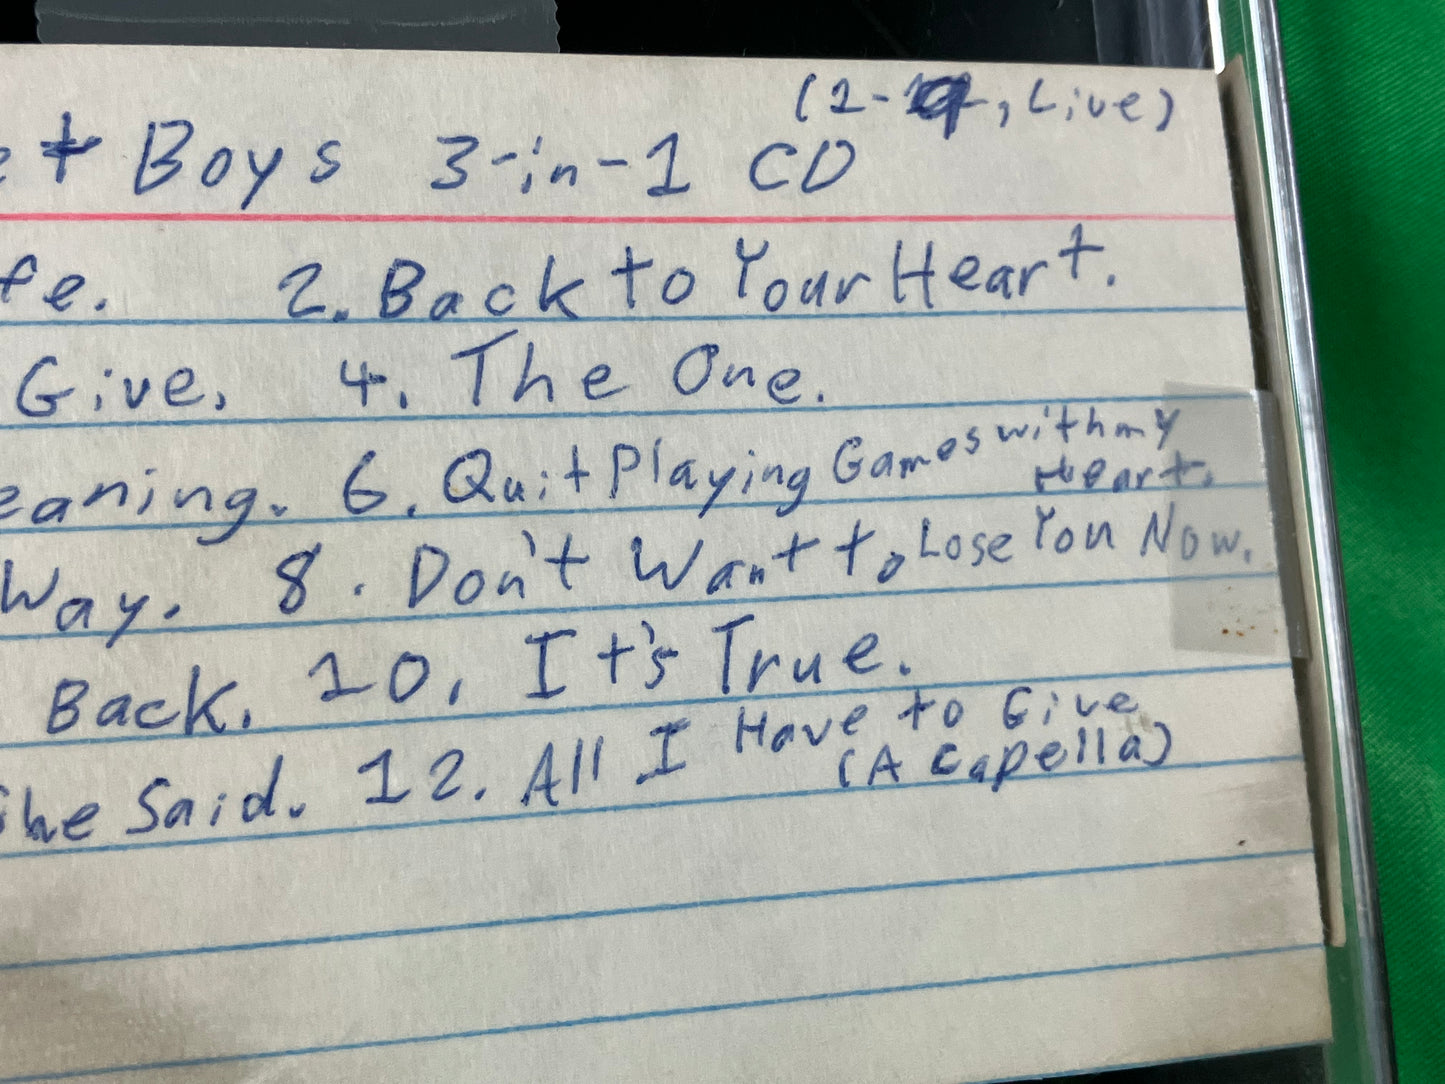 (1- , Live)
et Boys 3-in-1 CD
fe. 2. Back to Your Heart.
Give. 4. The One.
eaning. 6. Quit Playing Games with my
Heart.
Way. 8. Don't Want to Lose You Now.
Back. 10. It's True.
he Said. 12. All I Have to Give
(A Capella)